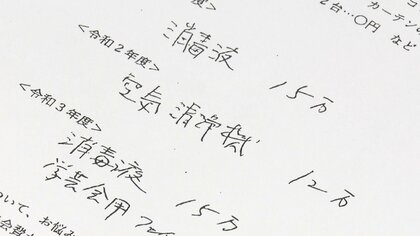 カーテンの
2台…○円 など
度>
消毒液 15万
<令和2年度>
空気清浄機 12万
<令和3年度>
消毒液 15万
学芸会用
ついて、お悩み